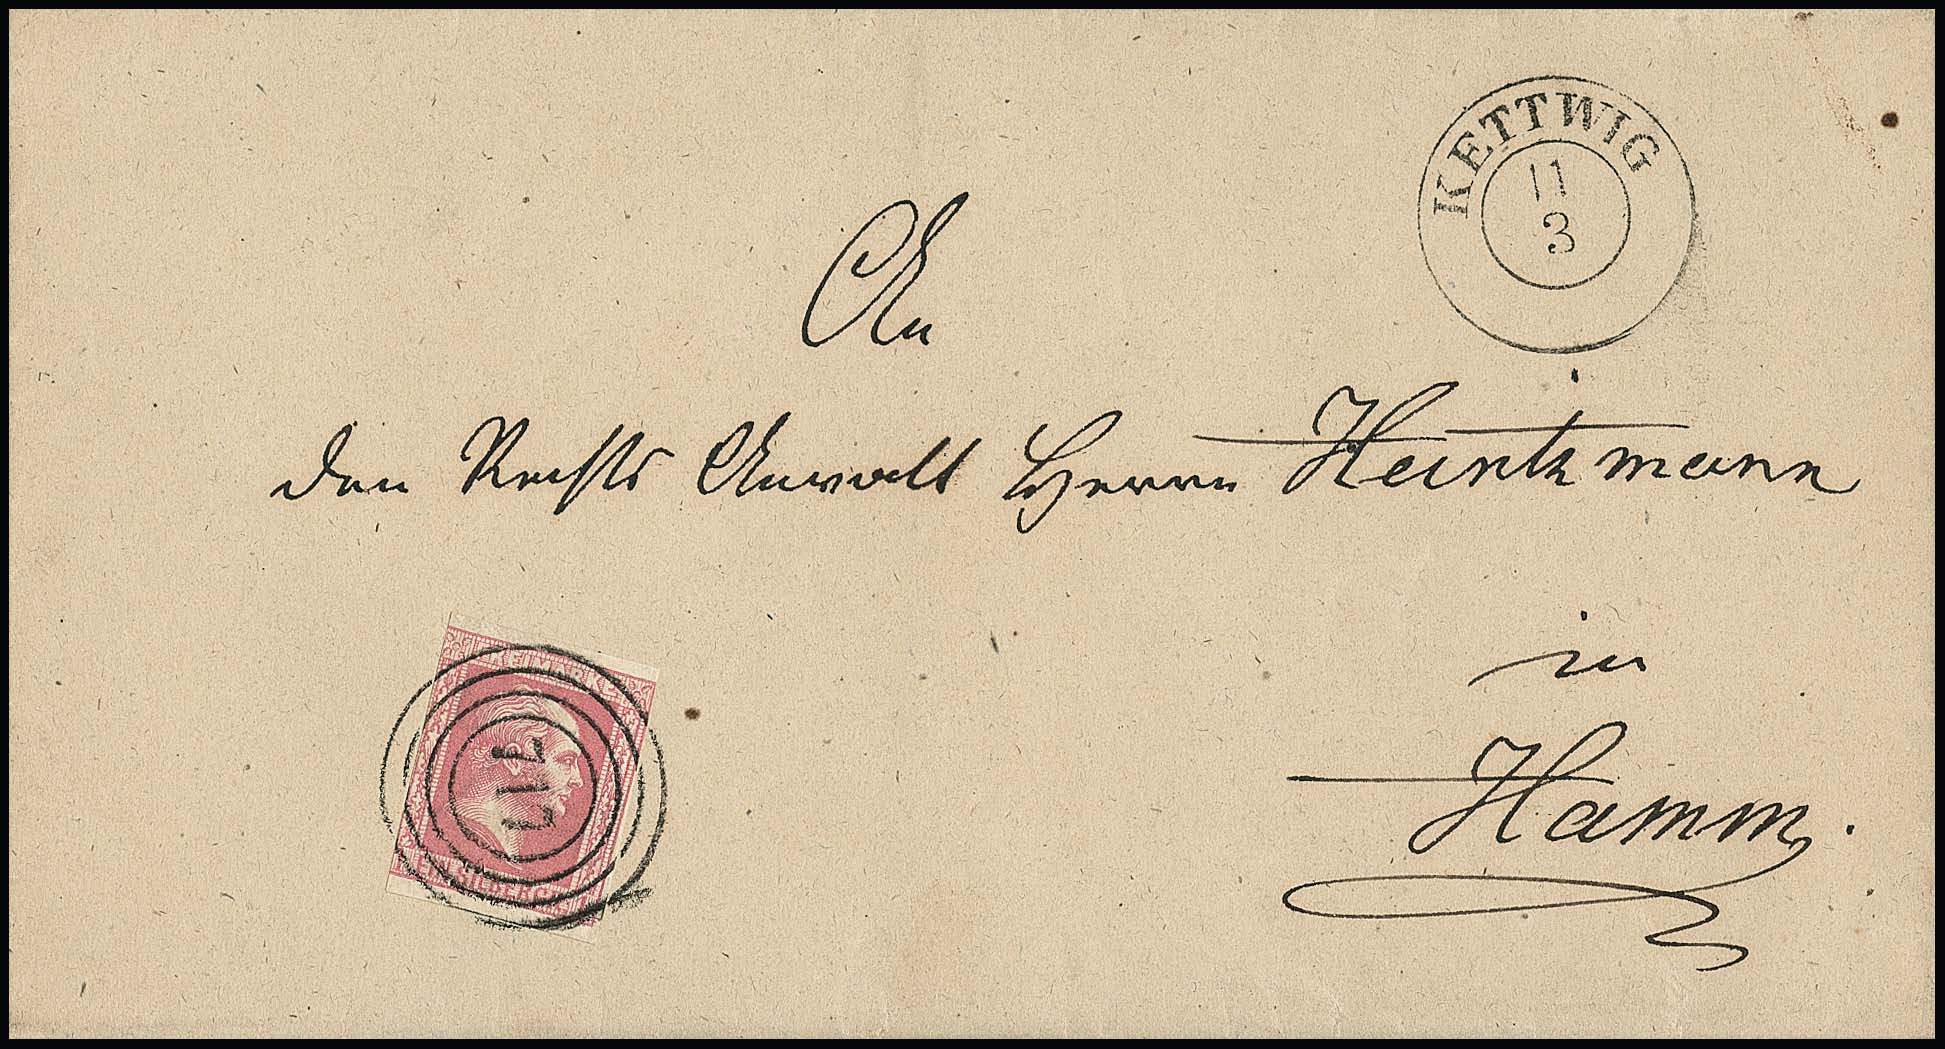 KETTWIG
11
3
An
den Rechts Anwalt Herrn Heintzmann
in
Hamm.
FREIMARKE
SILBERGR.